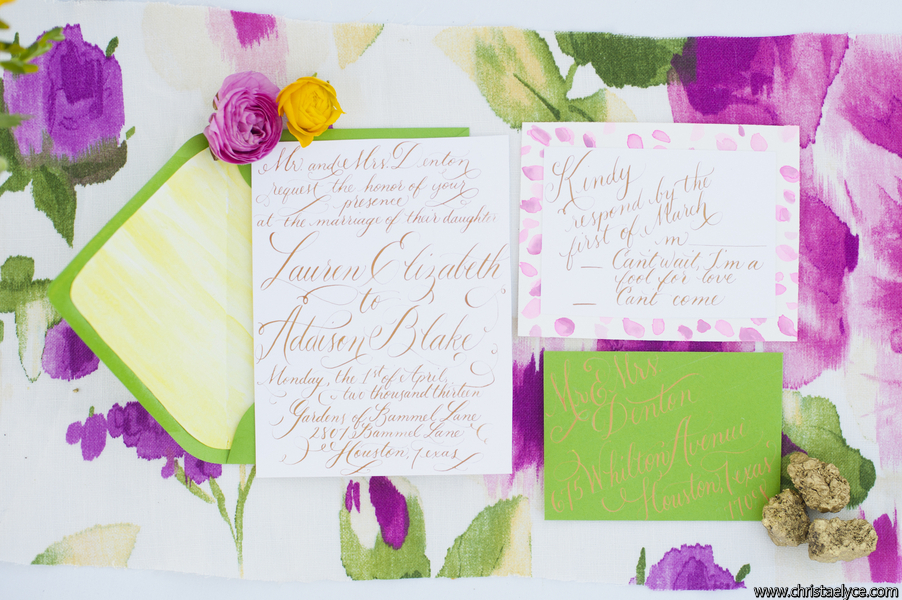 Mr and Mrs. Denton
request the honor of your
presence
at the marriage of their daughter
Lauren Elizabeth
to
Adaison Blake
Monday, the 1st of April
two thousand thirteen
Gardens of Bammel Lane
2807 Bammel Lane
Houston, Texas
Kindy
respond by the
first of March
m
Can't wait, I'm a
fool for love
Can't come
Mr & Mrs
Denton
675 Whilton Avenue
Houston, Texas
www.christaelyce.com